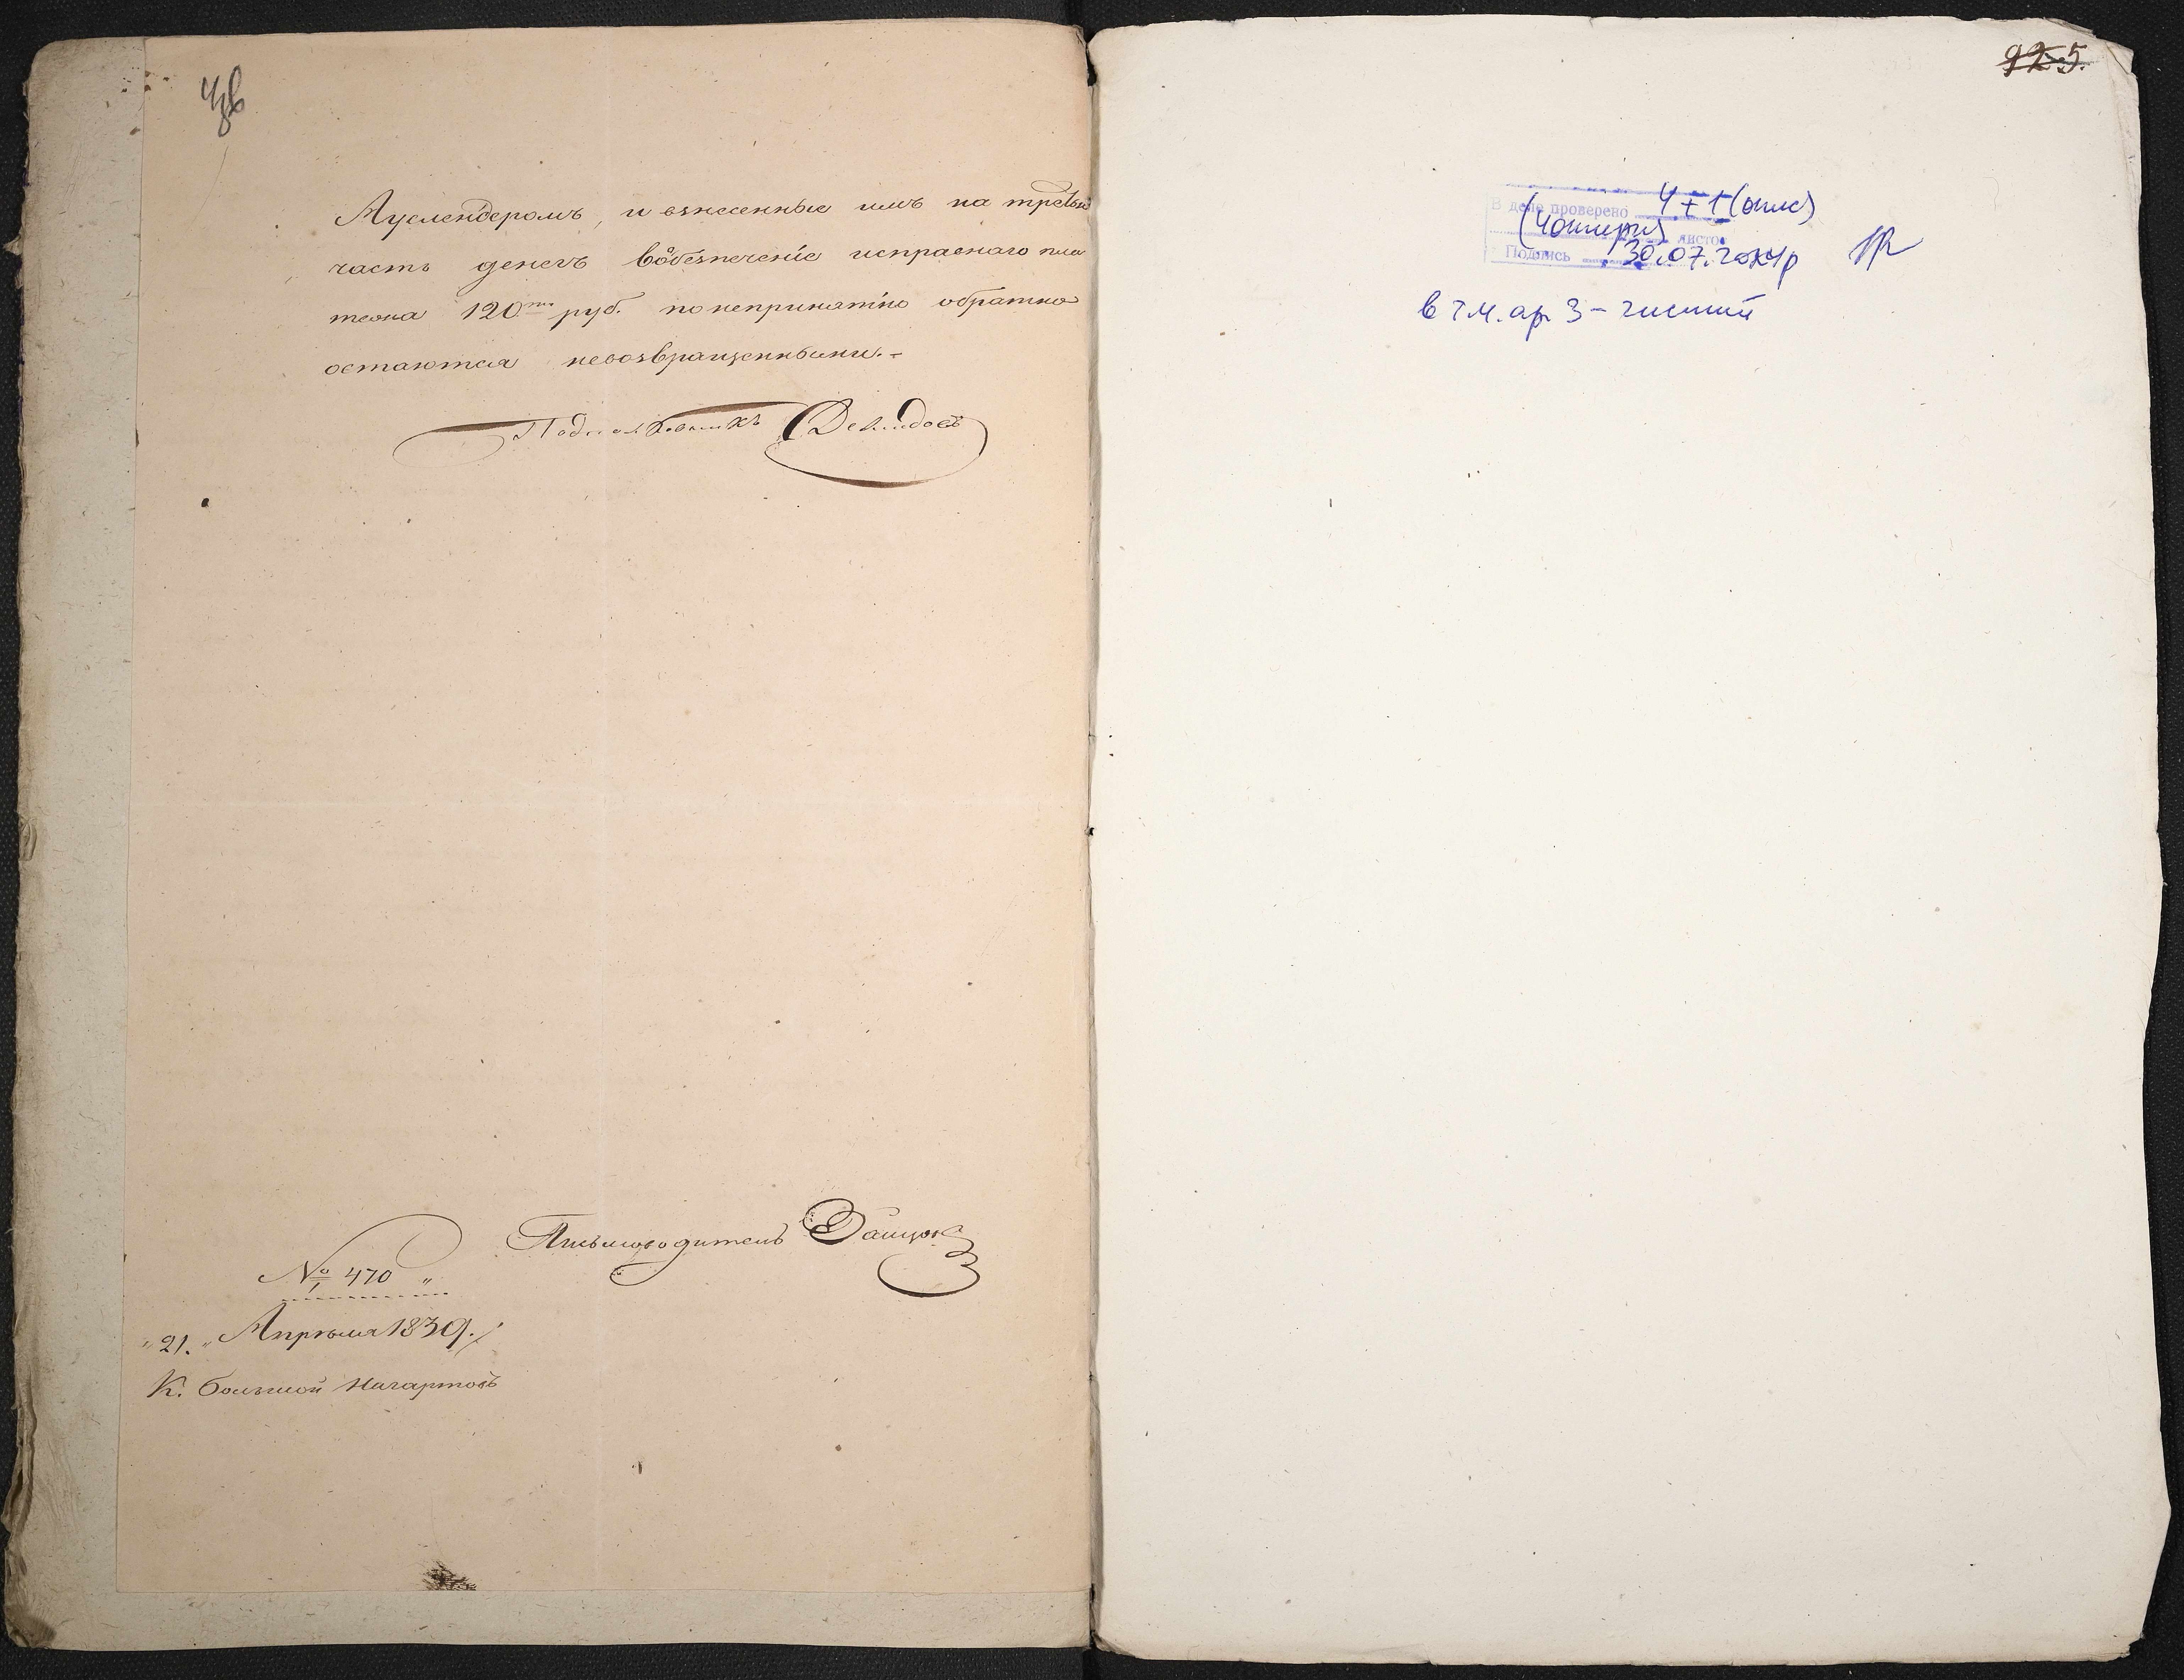 Муслендеромъ, и взнесенные имъ на третью
часть денегъ вобезпеченіе исправнаго пла
тежа 120ти руб. понепринятію обратно
остаются невозвращенными.-
Подполковникъ Демидовъ
Письмоводитель
№ 470 "
"21." Апрѣля 1839.
К. большой Начартовъ
925.
В деле проверено 4+1(опис)
(чотири) листов
Подпись 30.07.20
в т.ч. арк 3 - чистий